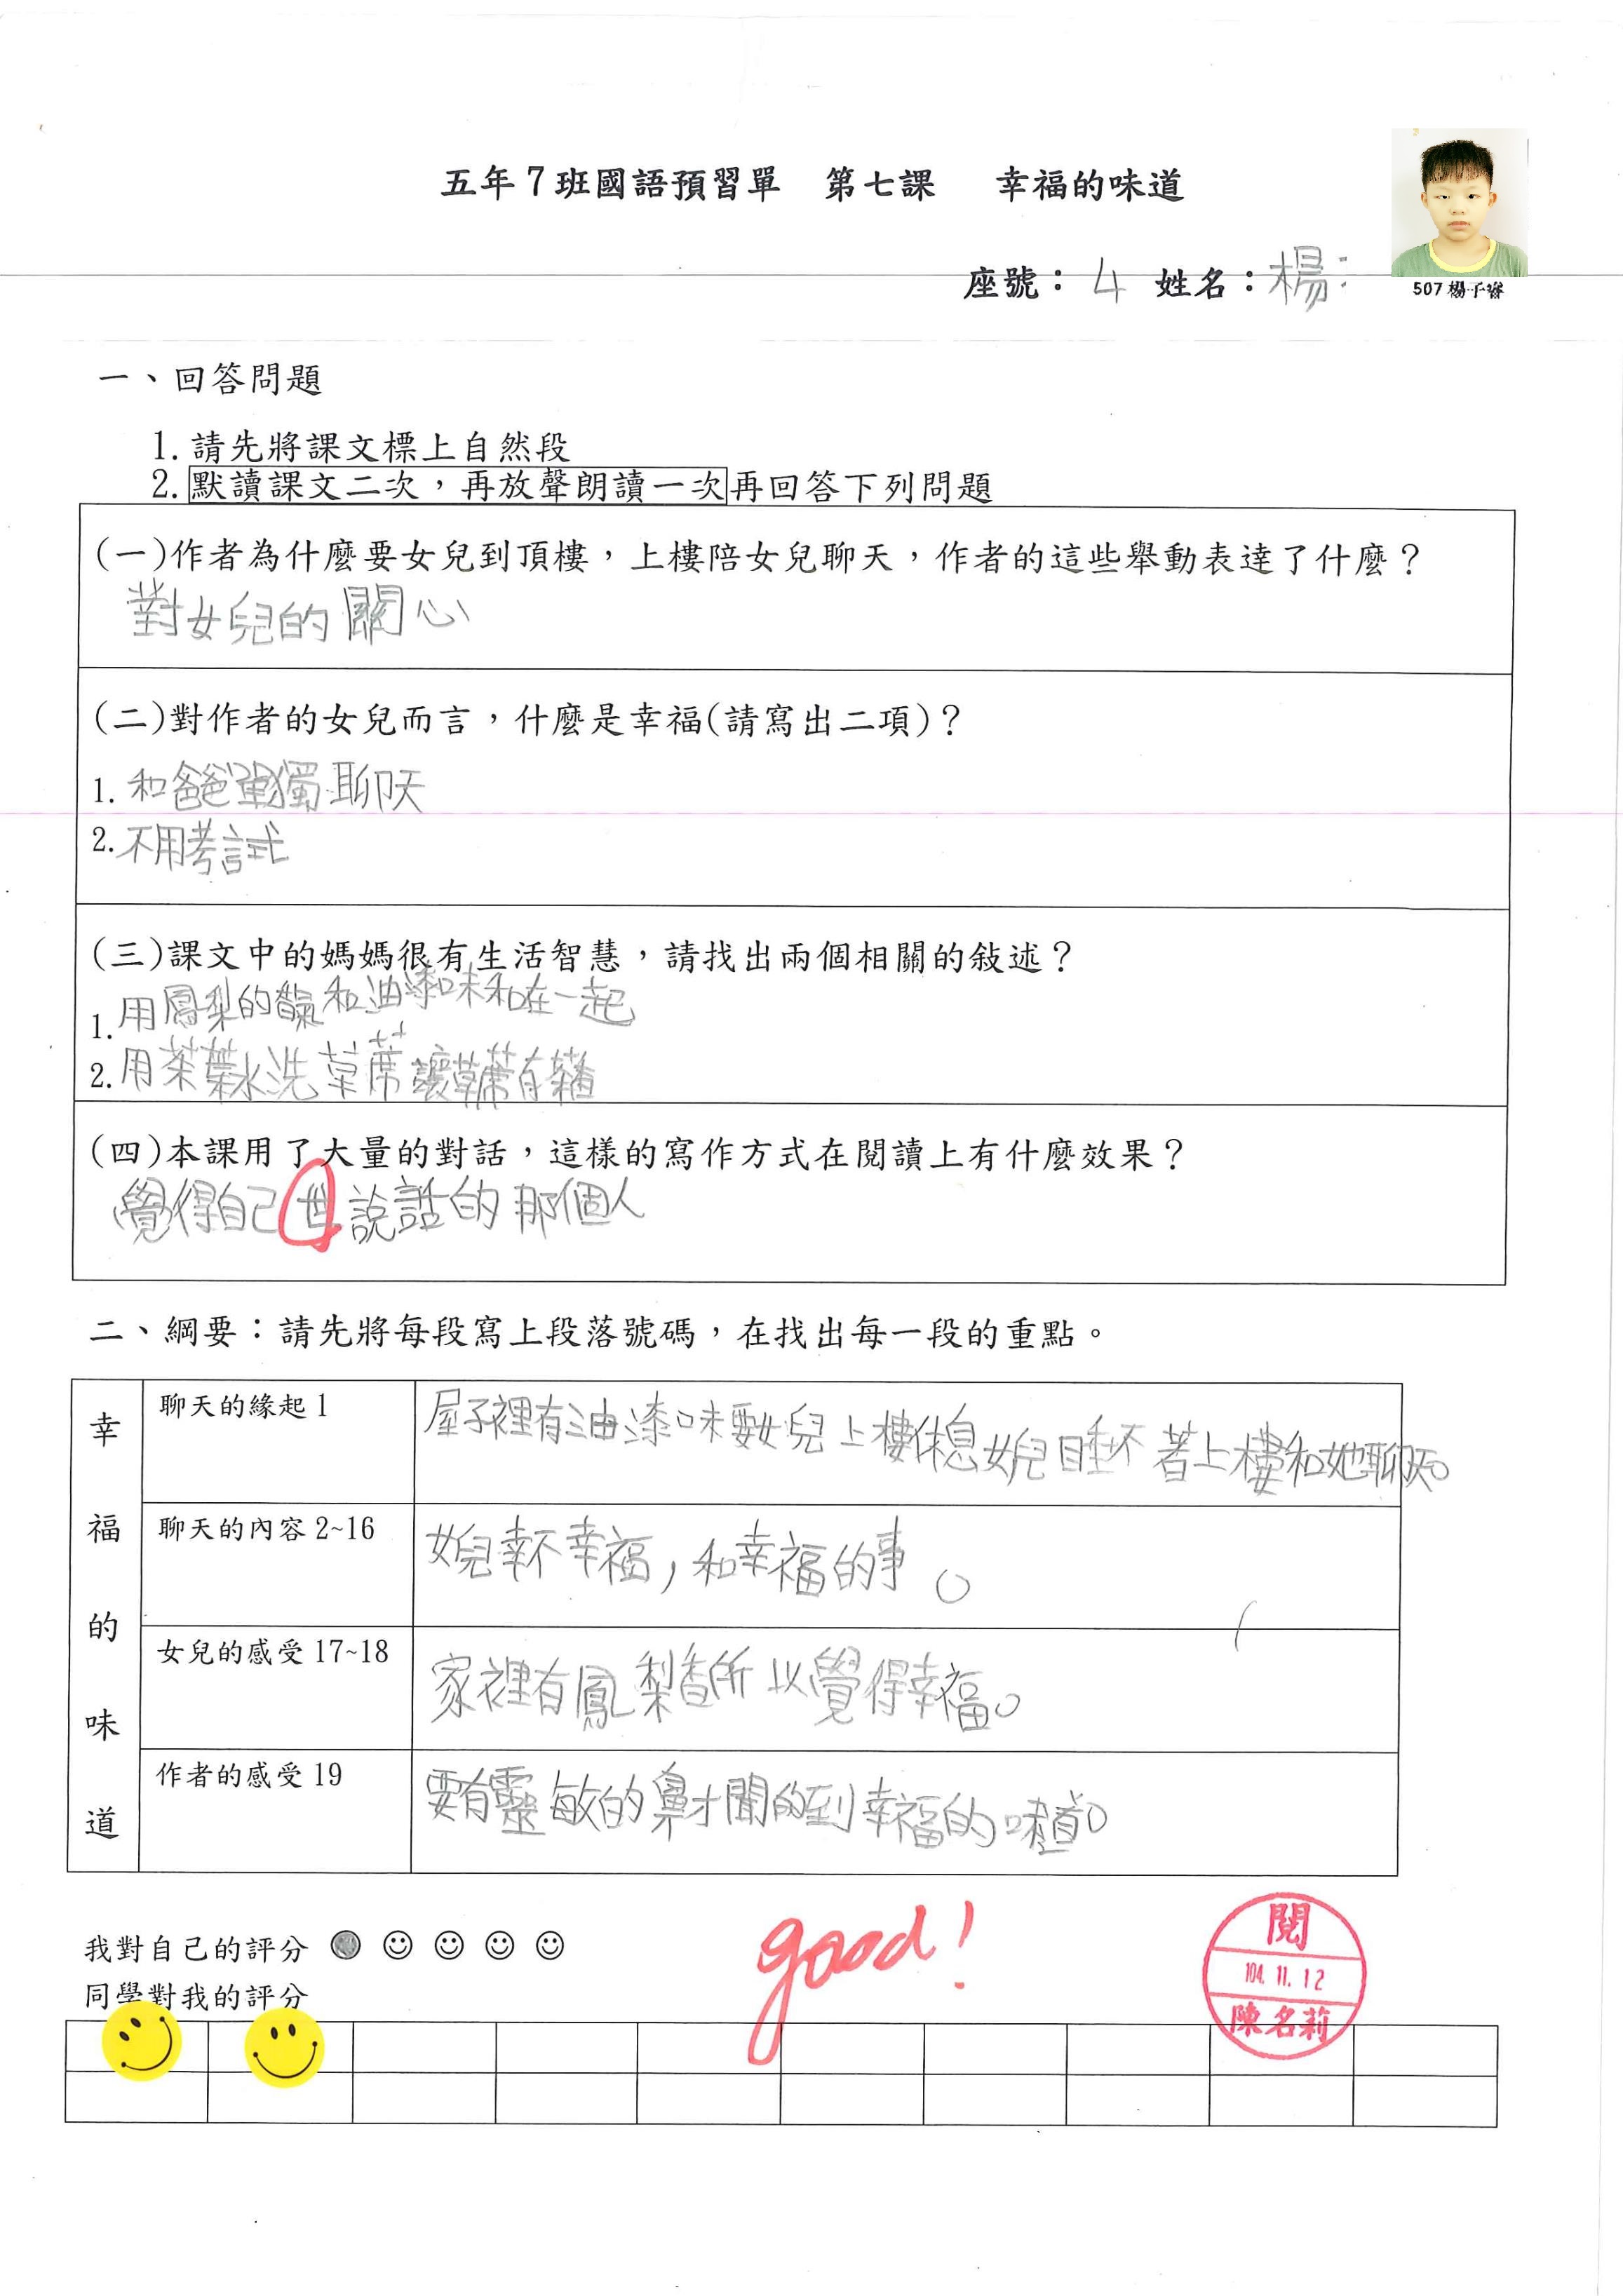 五年7班國語預習單 第七課 幸福的味道
座號：4 姓名：楊
507楊子睿
一、回答問題
1.請先將課文標上自然段
2.默讀課文二次，再放聲朗讀一次再回答下列問題
(一)作者為什麼要女兒到頂樓，上樓陪女兒聊天，作者的這些舉動表達了什麼？
對女兒的關心
(二)對作者的女兒而言，什麼是幸福(請寫出二項)？
1.和爸爸單獨聊天
2.不用考試
(三)課文中的媽媽很有生活智慧，請找出兩個相關的敍述？
1.用鳳梨的香氣和油漆味和在一起
2.用茶葉水洗草蓆讓草蓆有茶香
(四)本課用了大量的對話，這樣的寫作方式在閱讀上有什麼效果？
覺得自己世說話的那個人
二、綱要：請先將每段寫上段落號碼，在找出每一段的重點。
幸福的味道
聊天的緣起1
屋子裡有油漆味要女兒上樓休息女兒睡不著上樓和她聊天。
聊天的內容2~16
女兒幸不幸福，和幸福的事。
女兒的感受17~18
家裡有鳳梨香所以覺得幸福。
作者的感受19
要有靈敏的鼻才聞的到幸福的味道。
我對自己的評分
同學對我的評分
good!
閱
104.11.12
陳名莉